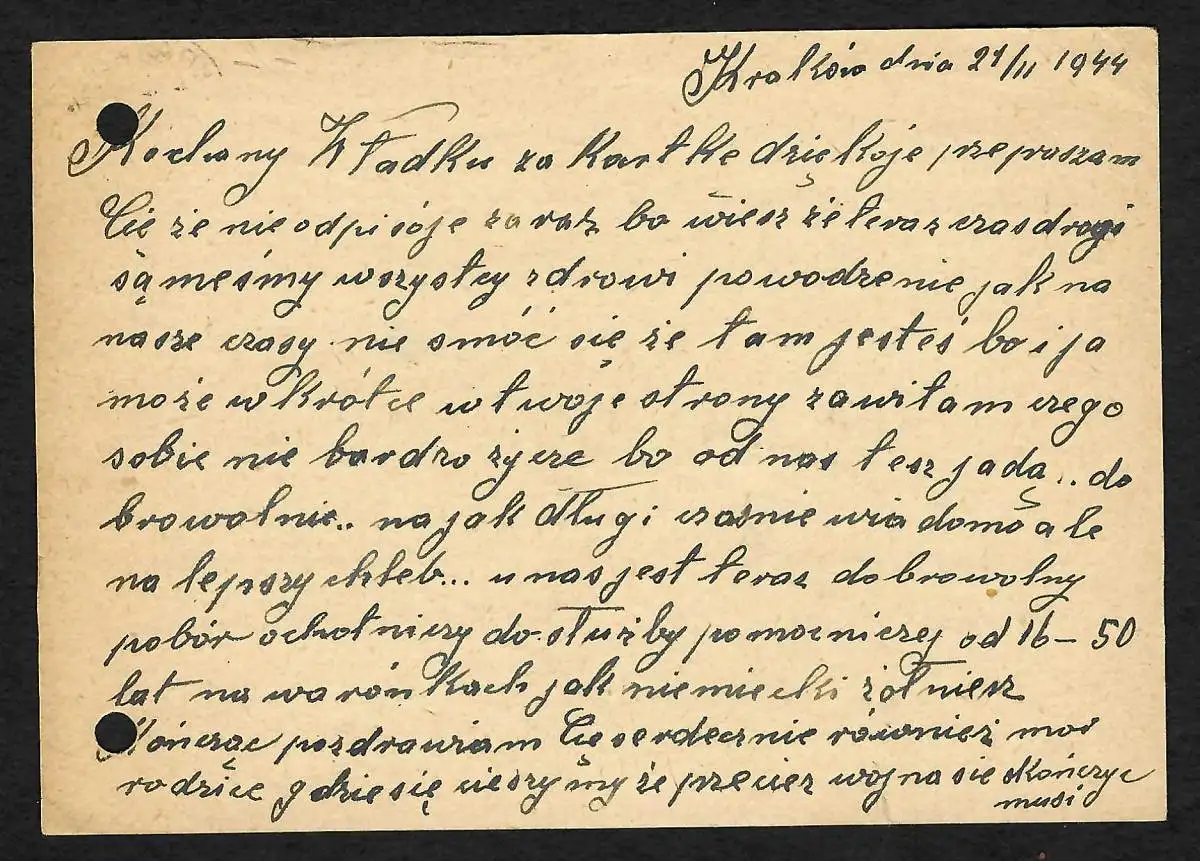 Kraków dnia 21/11 1944
Kochany Władku za kartke dziękoje przepraszam
Cie że nie odpisóje zaraz bo wiesz że teraz czas drogi
są meśmy wszystcy zdrowi powodzenie jak na
nasze czasy nie smóć się że tam jesteś bo i ja
może w krótce w twoje strony zawitam czego
sobie nie bardzo życze bo od nas tesz jadą .. do
browolnie.. na jak długi czas nie wiadomo ale
na lepszy chleb... u nas jest teraz dobrowolny
pobór ochotniczy do służby pomocniczej od 16 – 50
lat na warónkach jak niemiecki żołniesz
Kończąc pozdrawiam Cie serdecznie również moi
rodzice gdzie się cieszymy że przeciez wojna sie skończyc
musi